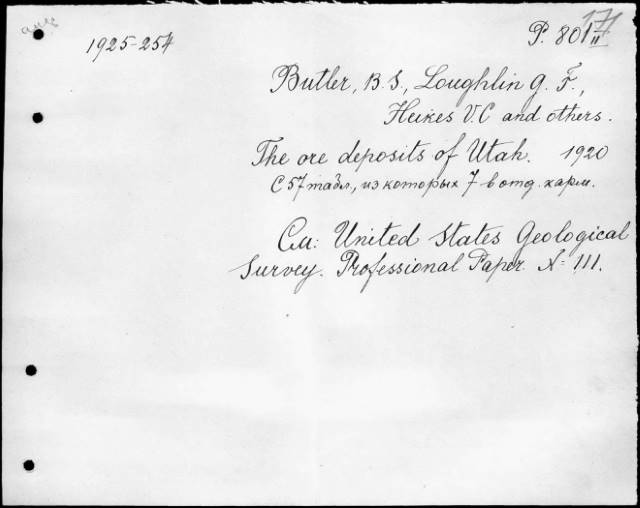 англ
1925-254
P. 801/II
171
Butler, B.S., Loughlin G. F.,
Heikes V.C and others.
The ore deposits of Utah. 1920
С 57 табл., из которых 7 в отд. карм.
См: United States Geological
Survey. Professional Paper. N= 111.